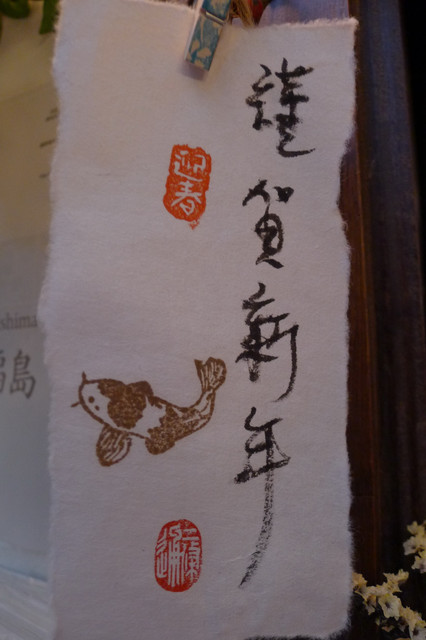 謹賀新年
迎春
shima
島